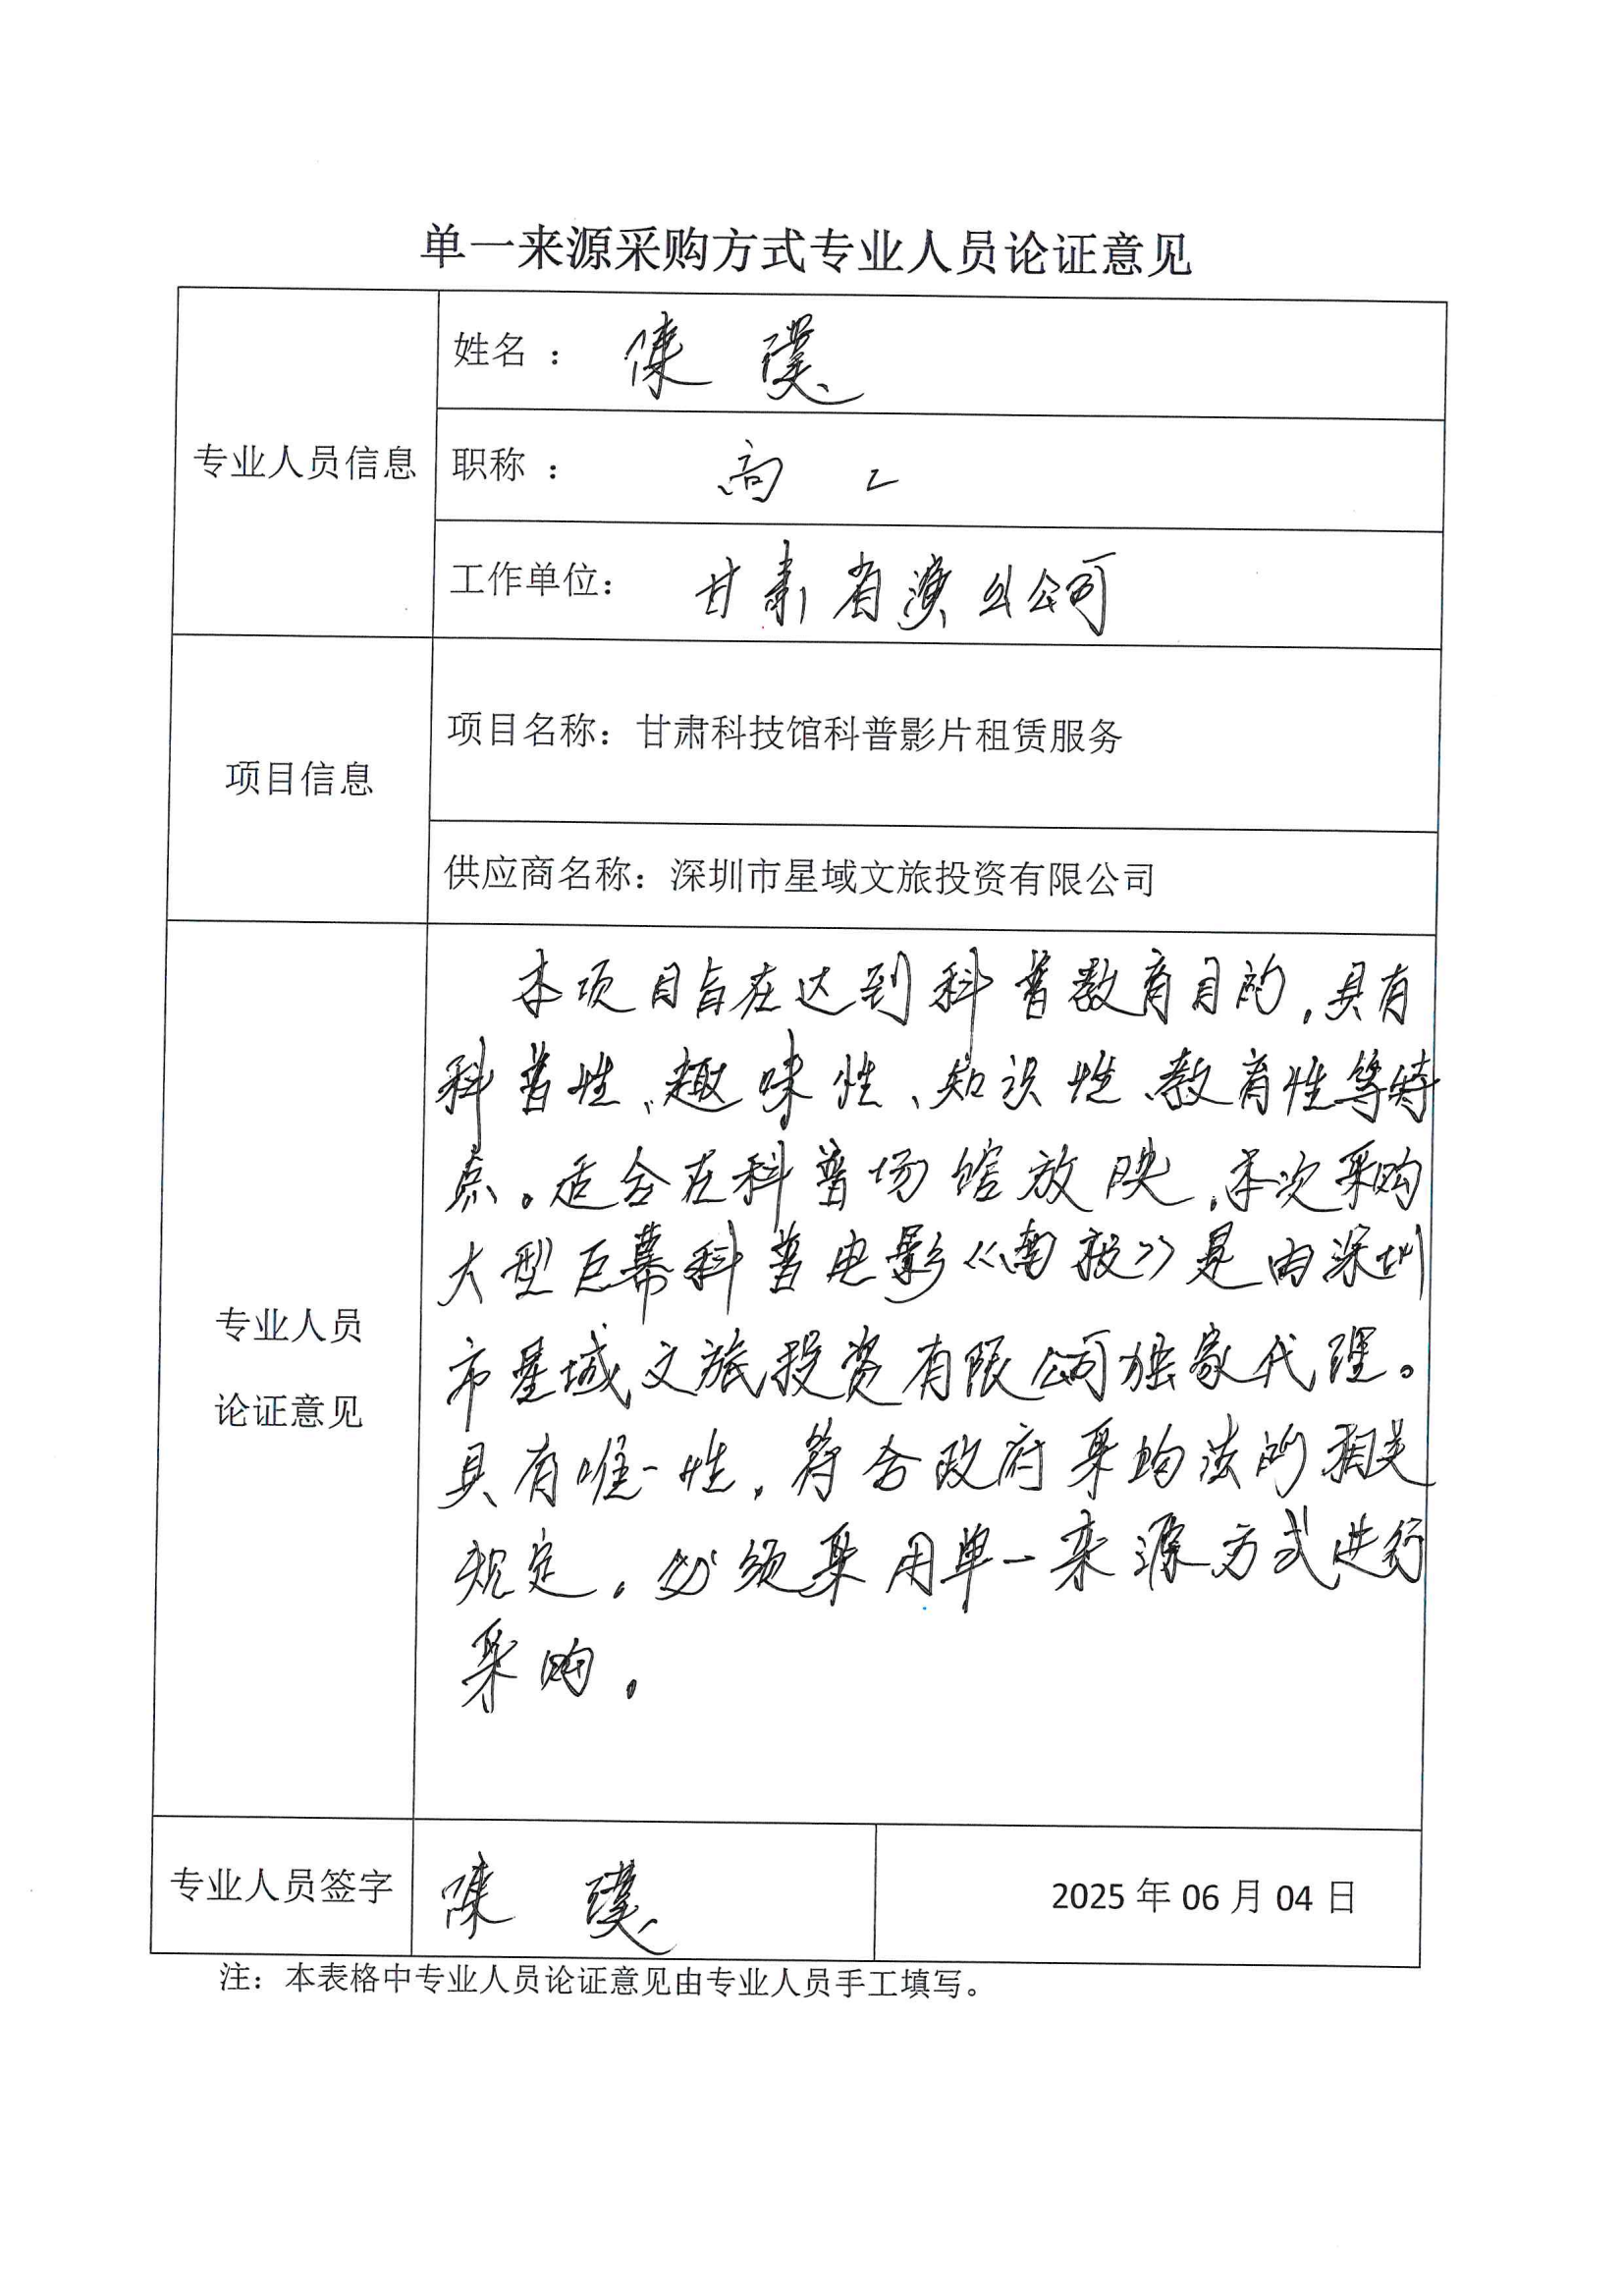 单一来源采购方式专业人员论证意见
专业人员信息
姓名 : 陈 璞
职称 : 高 工
工作单位: 甘肃省演出公司
项目信息
项目名称: 甘肃科技馆科普影片租赁服务
供应商名称: 深圳市星域文旅投资有限公司
专业人员
论证意见
本项目旨在达到科普教育目的,具有
科普性、趣味性、知识性、教育性等特
点。适合在科普场馆放映,本次采购
大型巨幕科普电影《南极》是由深圳
市星域文旅投资有限公司独家代理。
具有唯一性,符合政府采购法的相关
规定。必须采用单一来源方式进行
采购。
专业人员签字
陈 璞
2025 年 06 月 04 日
注: 本表格中专业人员论证意见由专业人员手工填写。